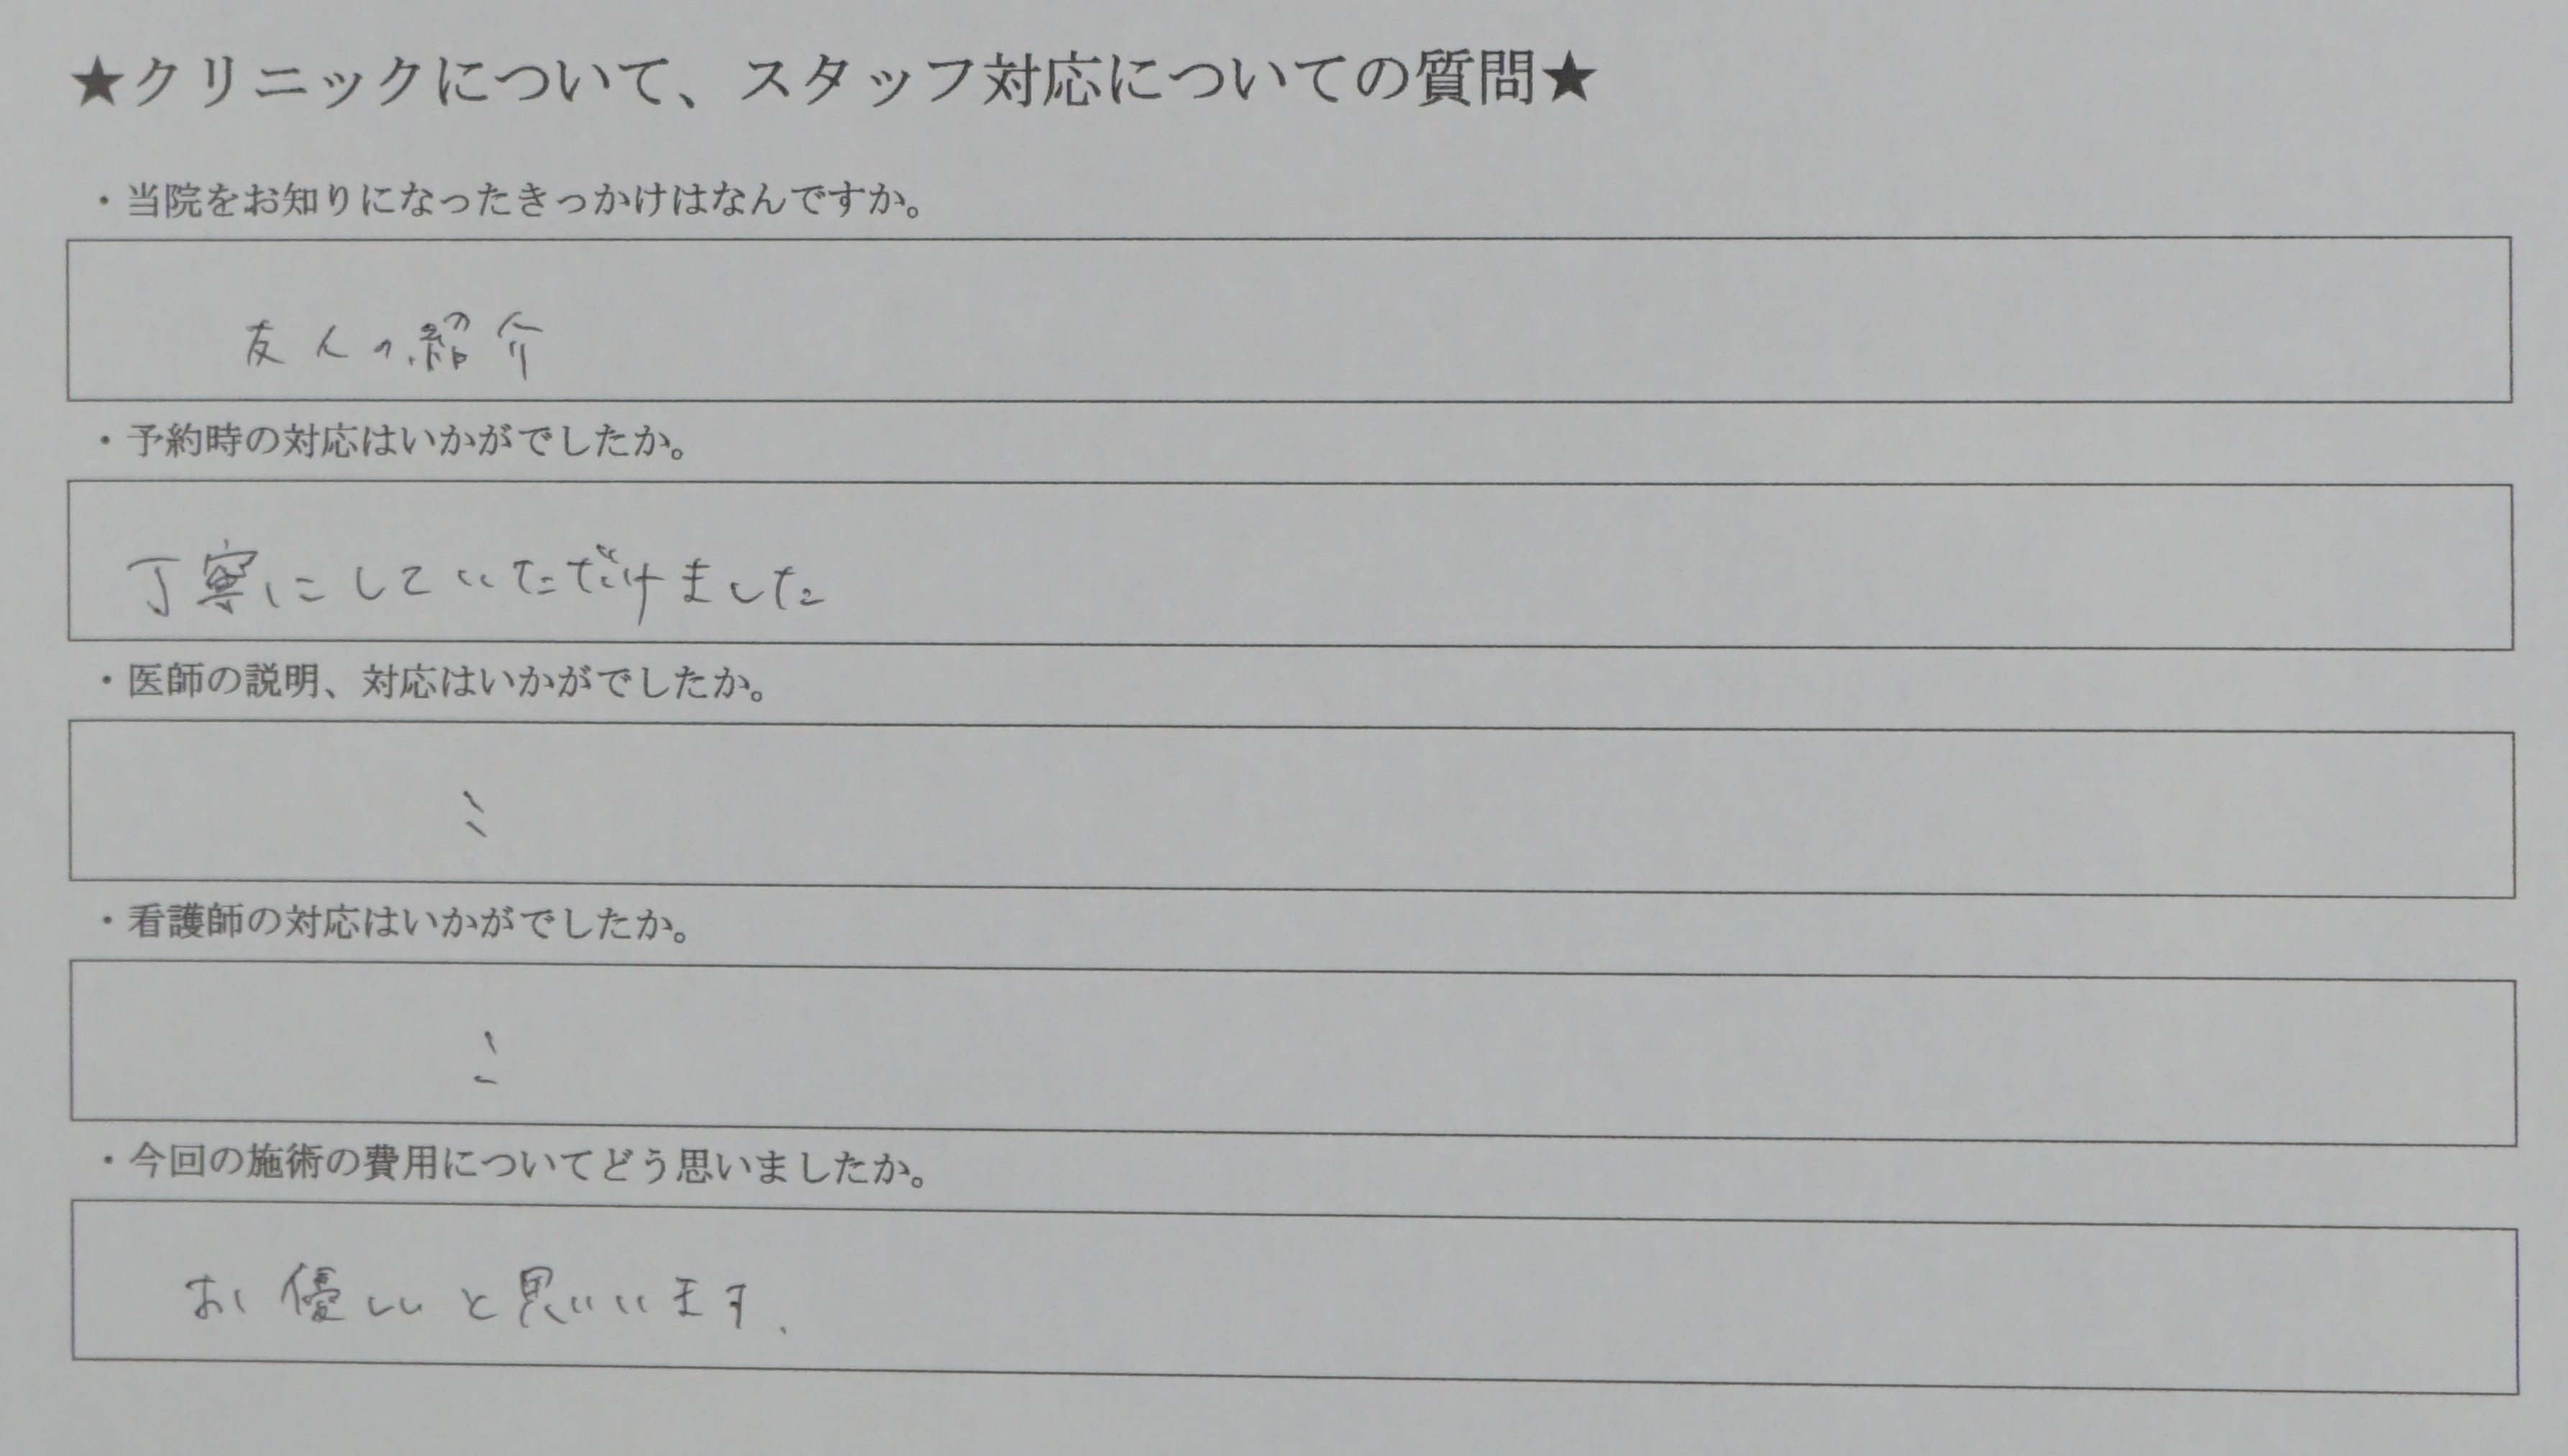 ★クリニックについて、スタッフ対応についての質問★
・当院をお知りになったきっかけはなんですか。
友人の紹介
・予約時の対応はいかがでしたか。
丁寧にしていただけました
・医師の説明、対応はいかがでしたか。
〃
・看護師の対応はいかがでしたか。
〃
・今回の施術の費用についてどう思いましたか。
お優しいと思いいます.